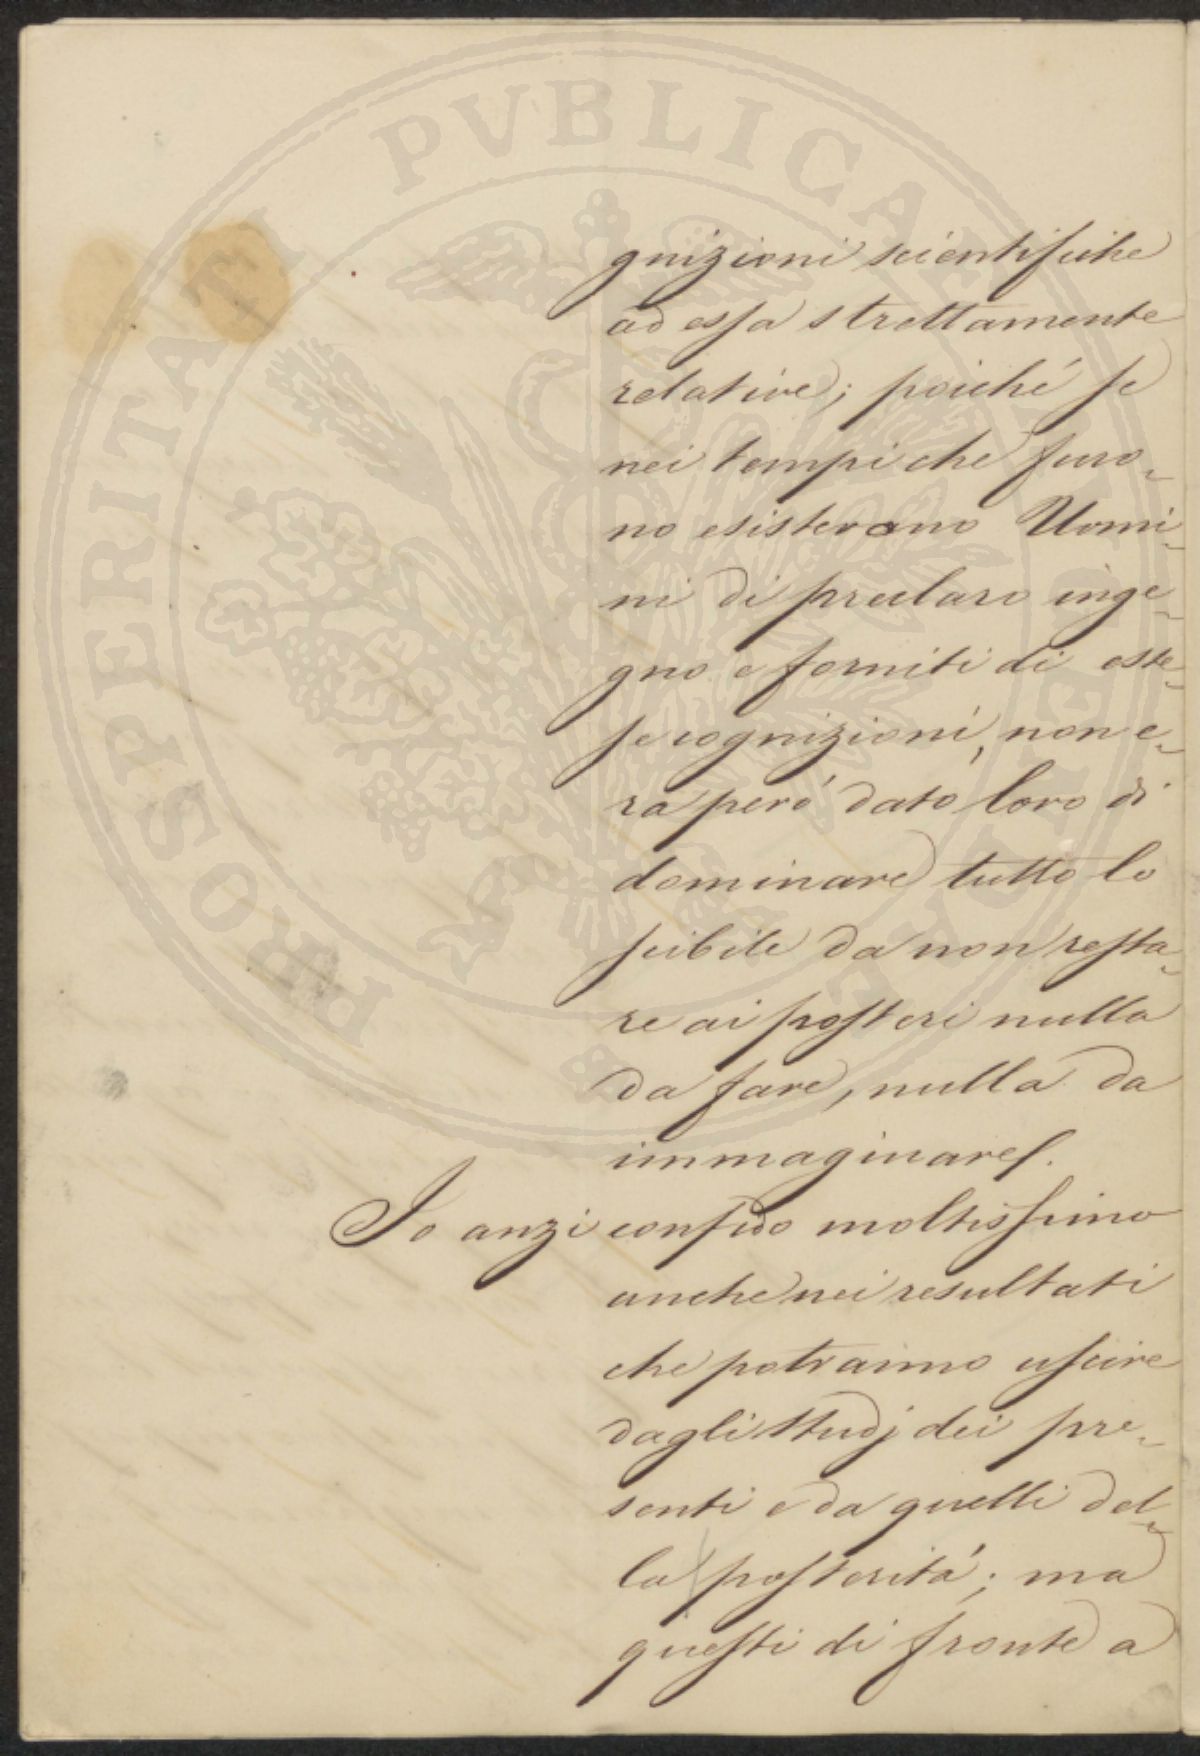 PROSPERITATI PVBLICAE AVGENDAE
gnizioni scientifiche
ad essa strettamente
relative; poiché se
nei tempi che furo-
no esistevano Uomi-
ni di preclaro inge-
gno e forniti di este-
se cognizioni, non e-
ra però dato loro di
dominare tutto lo
scibile da non resta-
re ai posteri nulla
da fare, nulla da
immaginare.
Io anzi confido moltissimo
anche nei resultati
che potranno uscire
dagli studj dei pre-
senti e da quelli del-
la posterità; ma
questi di fronte a